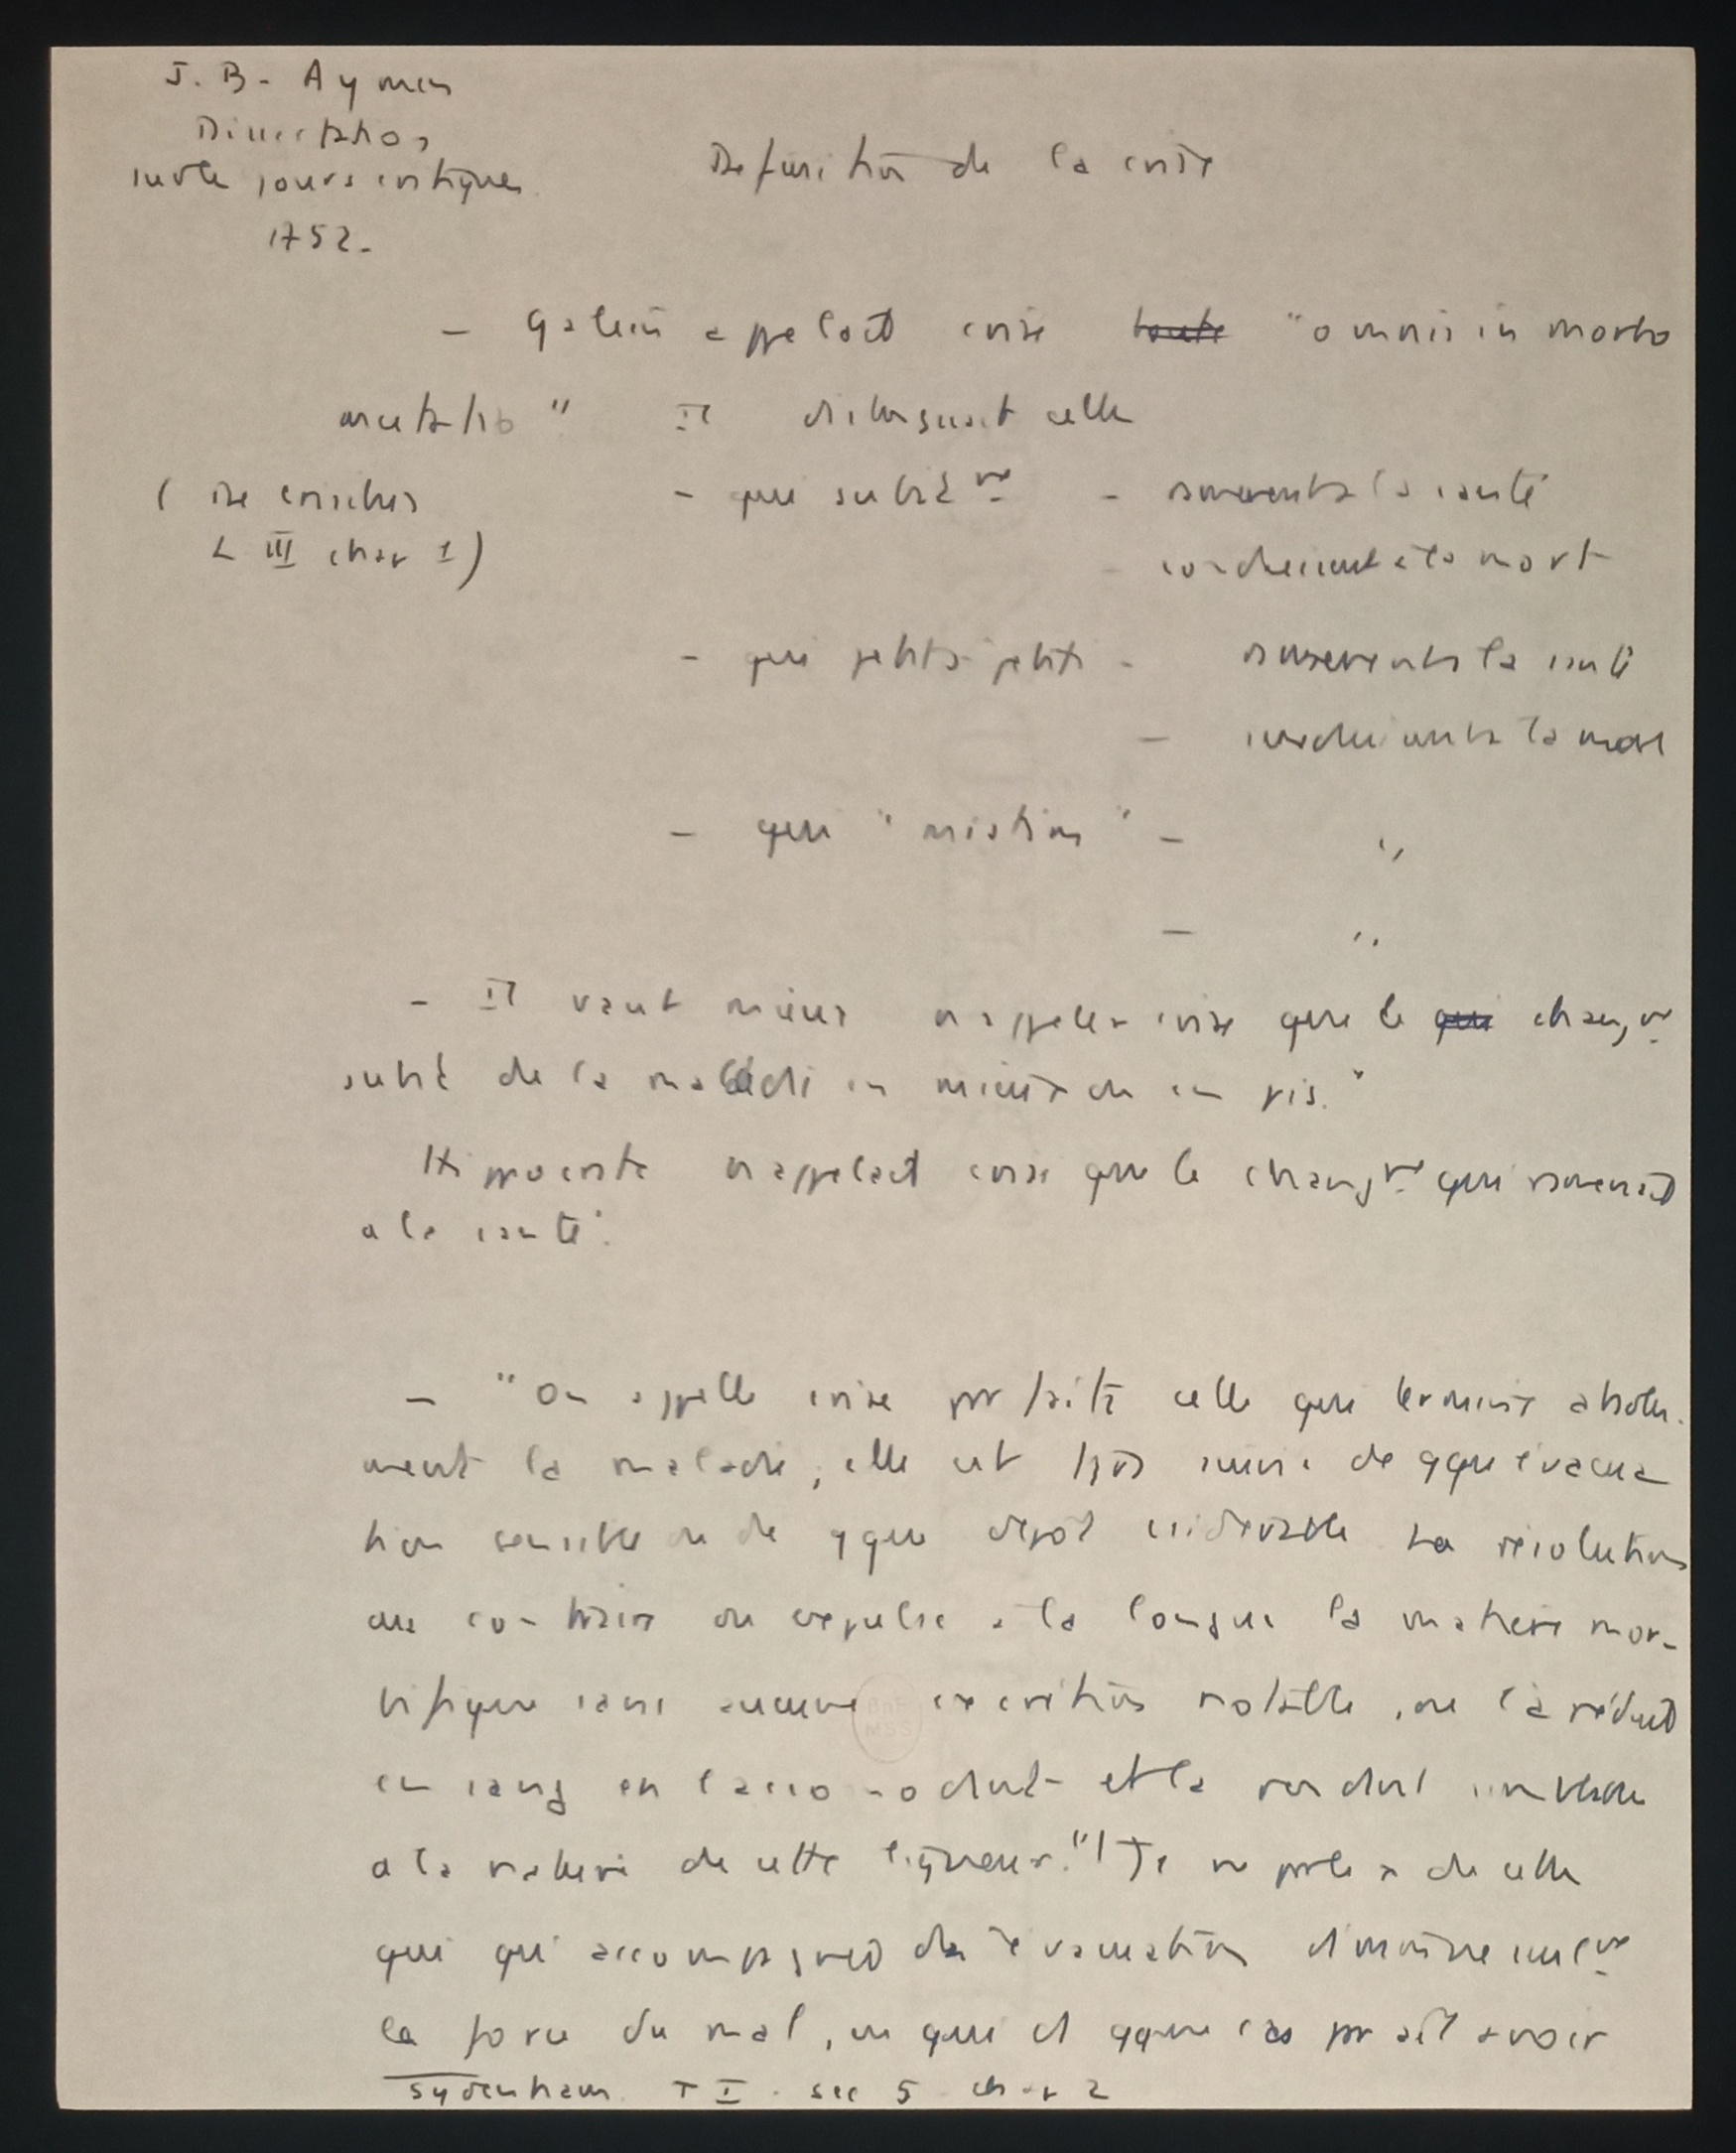 J. B. Aymen
Dissertation
sur les jours critiques
1752.
Définition de la crise
– Galien appelait crise toute "omnis in morbo
mutatio" Il distinguait celle
(De crisibus
L III chap 1)
– que subit^mt – ramenant à la santé
– conduisent à la mort
– que petit à petit – ramenant à la santé
– conduisant à la mort
– que "mixtim" – "
– "
– Il vaut mieux n'appeler crise que le qui chang^mt
subit de la maladie en mieux ou en pis."
Hippocrate n'appelait crise que le chang^mt qui ramenait
à la santé.
– "On appelle crise parfaite celle qui termine absolu-
ment la maladie, elle est suivie de qque évacua
tion sensible ou de qque dépôt considérable La résolution
au contraire ou expulse à la longue la matière mor-
bifique sans aucune excrétion notable, ou la réduit
en sang en l'accomodant et la rendant semblable
à la nature de cette liqueur."1 Je ne parle pas de celle
qui qui accompagnée des évacuations diminue seul^mt
la force du mal, ou qui et qque cas paraît avoir
Sydenham. T I. sec 5 chap 2